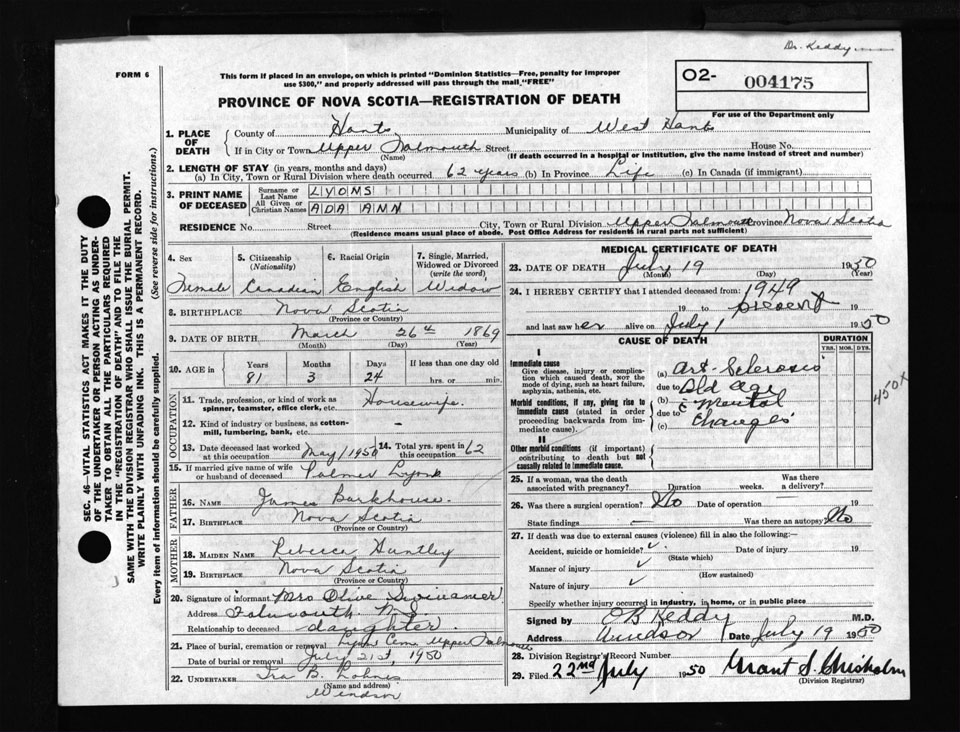 Dr. Keddy
FORM 6
This form if placed in an envelope, on which is printed "Dominion Statistics—Free, penalty for improper
use $300," and properly addressed will pass through the mail "FREE"
PROVINCE OF NOVA SCOTIA—REGISTRATION OF DEATH
O2- 004175
For use of the Department only
SEC. 46—VITAL STATISTICS ACT MAKES IT THE DUTY
OF THE UNDERTAKER OR PERSON ACTING AS UNDER-
TAKER TO OBTAIN ALL THE PARTICULARS REQUIRED
IN THE "REGISTRATION OF DEATH" AND TO FILE THE
SAME WITH THE DIVISION REGISTRAR WHO SHALL ISSUE THE BURIAL PERMIT.
WRITE PLAINLY WITH UNFADING INK. THIS IS A PERMANENT RECORD.
(See reverse side for instructions.)
Every item of Information should be carefully supplied.
1. PLACE OF DEATH County of Hants Municipality of West Hants
If in City or Town Upper Falmouth Street House No.
(Name) (If death occurred in a hospital or institution, give the name instead of street and number)
2. LENGTH OF STAY (in years, months and days)
(a) In City, Town or Rural Division where death occurred 62 years (b) In Province Life (c) In Canada (if immigrant)
3. PRINT NAME OF DECEASED Surname or Last Name LYONS
All Given or Christian Names ADA ANN
RESIDENCE No. Street City, Town or Rural Division Upper Falmouth Province Nova Scotia
(Residence means usual place of abode. Post Office Address for residents in rural parts not sufficient)
4. Sex 5. Citizenship (Nationality) 6. Racial Origin 7. Single, Married, Widowed or Divorced (write the word)
Female Canadian English Widow
8. BIRTHPLACE Nova Scotia
(Province or Country)
9. DATE OF BIRTH March 26th 1869
(Month) (Day) (Year)
10. AGE in Years Months Days If less than one day old
81 3 24 hrs. or min.
OCCUPATION
11. Trade, profession, or kind of work as spinner, teamster, office clerk, etc. Housewife.
12. Kind of industry or business, as cotton-mill, lumbering, bank, etc. -
13. Date deceased last worked at this occupation May 1950 14. Total yrs. spent in this occupation 62
15. If married give name of wife or husband of deceased Palmer Lyons
FATHER
16. NAME James Barkhouse.
17. BIRTHPLACE Nova Scotia
(Province or Country)
MOTHER
18. MAIDEN NAME Rebecca Huntley
19. BIRTHPLACE Nova Scotia
(Province or Country)
20. Signature of informant Mrs Olive
Address Falmouth N.S.
Relationship to deceased daughter
21. Place of burial, cremation or removal Lyons Cem. Upper Falmouth
Date of burial or removal July 21st, 1950
22. UNDERTAKER Ira B. Lohnes
(Name and address)
Windsor
MEDICAL CERTIFICATE OF DEATH
23. DATE OF DEATH July 19 1950
(Month) (Day) (Year)
24. I HEREBY CERTIFY that I attended deceased from: 1949
19 to present
and last saw her alive on July 1 1950
CAUSE OF DEATH DURATION
YRS. MOS. DYS.
I
Immediate cause
Give disease, injury or complication which caused death, not the mode of dying, such as heart failure, asphyxia, asthenia, etc.
(a) Art. Sclerosis
due to Old Age
Morbid conditions, if any, giving rise to immediate cause (stated in order proceeding backwards from immediate cause).
(b) c̄ Mental
due to Changes
(c)
450X
II
Other morbid conditions (if important) contributing to death but not causally related to immediate cause.
25. If a woman, was the death associated with pregnancy? Duration weeks. Was there a delivery?
26. Was there a surgical operation? No Date of operation 19
State findings — Was there an autopsy No
27. If death was due to external causes (violence) fill in also the following:
Accident, suicide or homicide? Date of injury 19
(State which)
Manner of injury
(How sustained)
Nature of injury
Specify whether injury occurred in industry, in home, or in public place
Signed by E B Keddy M.D.
Address Windsor Date July 19 1950
28. Division Registrar's Record Number
29. Filed 22nd July 1950 Grant S. Chisholm
(Division Registrar)